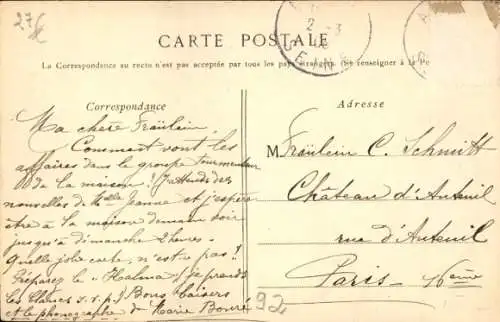 27
CARTE POSTALE
La Correspondance au recto n'est pas acceptée par tous les pays étrangers. (Se renseigner à la Po
Correspondance
Ma chère Fräulein,
Comment sont les
affaires dans le groupe
de la maison! J'attends des
nouvelles de Melle Jeanne et j'espère
être à la maison demain soir
jusqu'à dimanche 2 heures.
Quelle jolie carte, n'est ce pas!
Préparez le "Halma" je prends
les blancs s.v.p. Bons baisers
et le phonographe de Marie
92
Adresse
M Fräulein C. Schmitt
Château d'Auteuil
rue d'Auteuil
Paris - 16ème